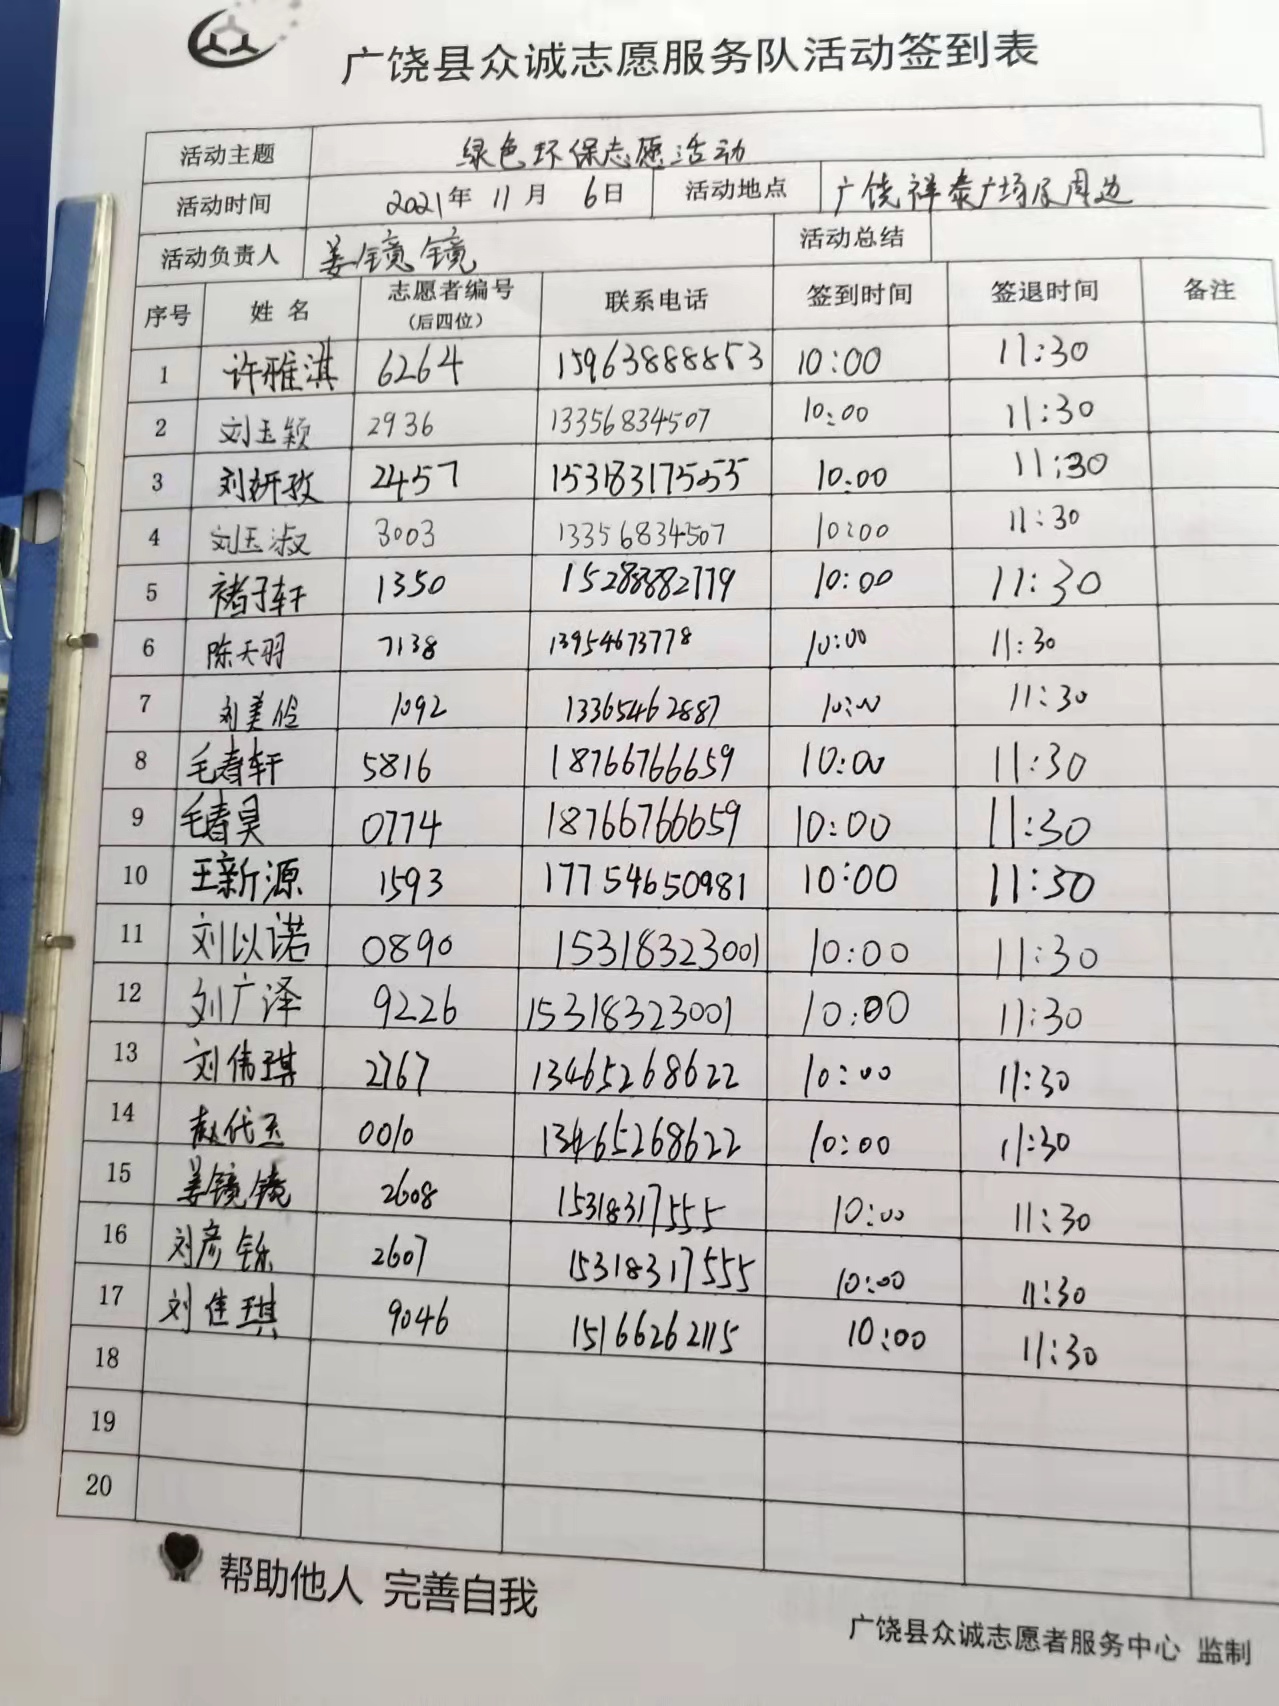 广饶县众诚志愿服务队活动签到表
活动主题 绿色环保志愿活动
活动时间 2021年 11月 6日 活动地点 广饶祥泰广场及周边
活动负责人 姜镜镜 活动总结
序号 姓名 志愿者编号 (后四位) 联系电话 签到时间 签退时间 备注
1 许雅淇 6264 15963888853 10:00 11:30
2 刘玉颖 2936 13356834507 10:00 11:30
3 刘妍孜 2457 15318317555 10:00 11:30
4 刘玉淑 3003 13356834507 10:00 11:30
5 褚子轩 1350 15288882779 10:00 11:30
6 陈天羽 7138 13954673778 10:00 11:30
7 刘美伶 1092 13365462887 10:00 11:30
8 毛春轩 5816 18766766659 10:00 11:30
9 毛春昊 0774 18766766659 10:00 11:30
10 王新源 1593 17754650981 10:00 11:30
11 刘以诺 0890 15318323001 10:00 11:30
12 刘广泽 9226 15318323001 10:00 11:30
13 刘伟琪 2767 13465268622 10:00 11:30
14 赵代玉 0010 13465268622 10:00 11:30
15 姜镜镜 2608 15318317555 10:00 11:30
16 刘彦铄 2607 15318317555 10:00 11:30
17 刘佳琪 9046 15166262115 10:00 11:30
18
19
20
帮助他人 完善自我
广饶县众诚志愿者服务中心 监制